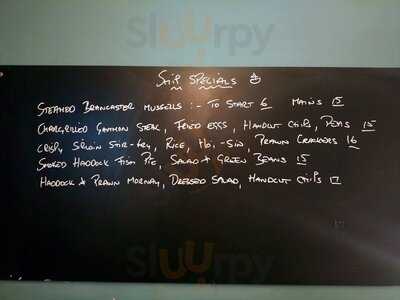 Sluurpy
Ship Specials
Steamed Brancaster Mussels :- To Start 6 Mains 15
Chargrilled Gammon Steak, Fried Eggs, Handcut Chips, Peas 15
Crisp, Sirloin Stir-fry, Rice, Hoi-Sin, Prawn Crackers 16
Smoked Haddock Fish Pie, Salad + Green Beans 15
Haddock + Prawn Mornay, Dressed Salad, Handcut Chips
Sluurpy